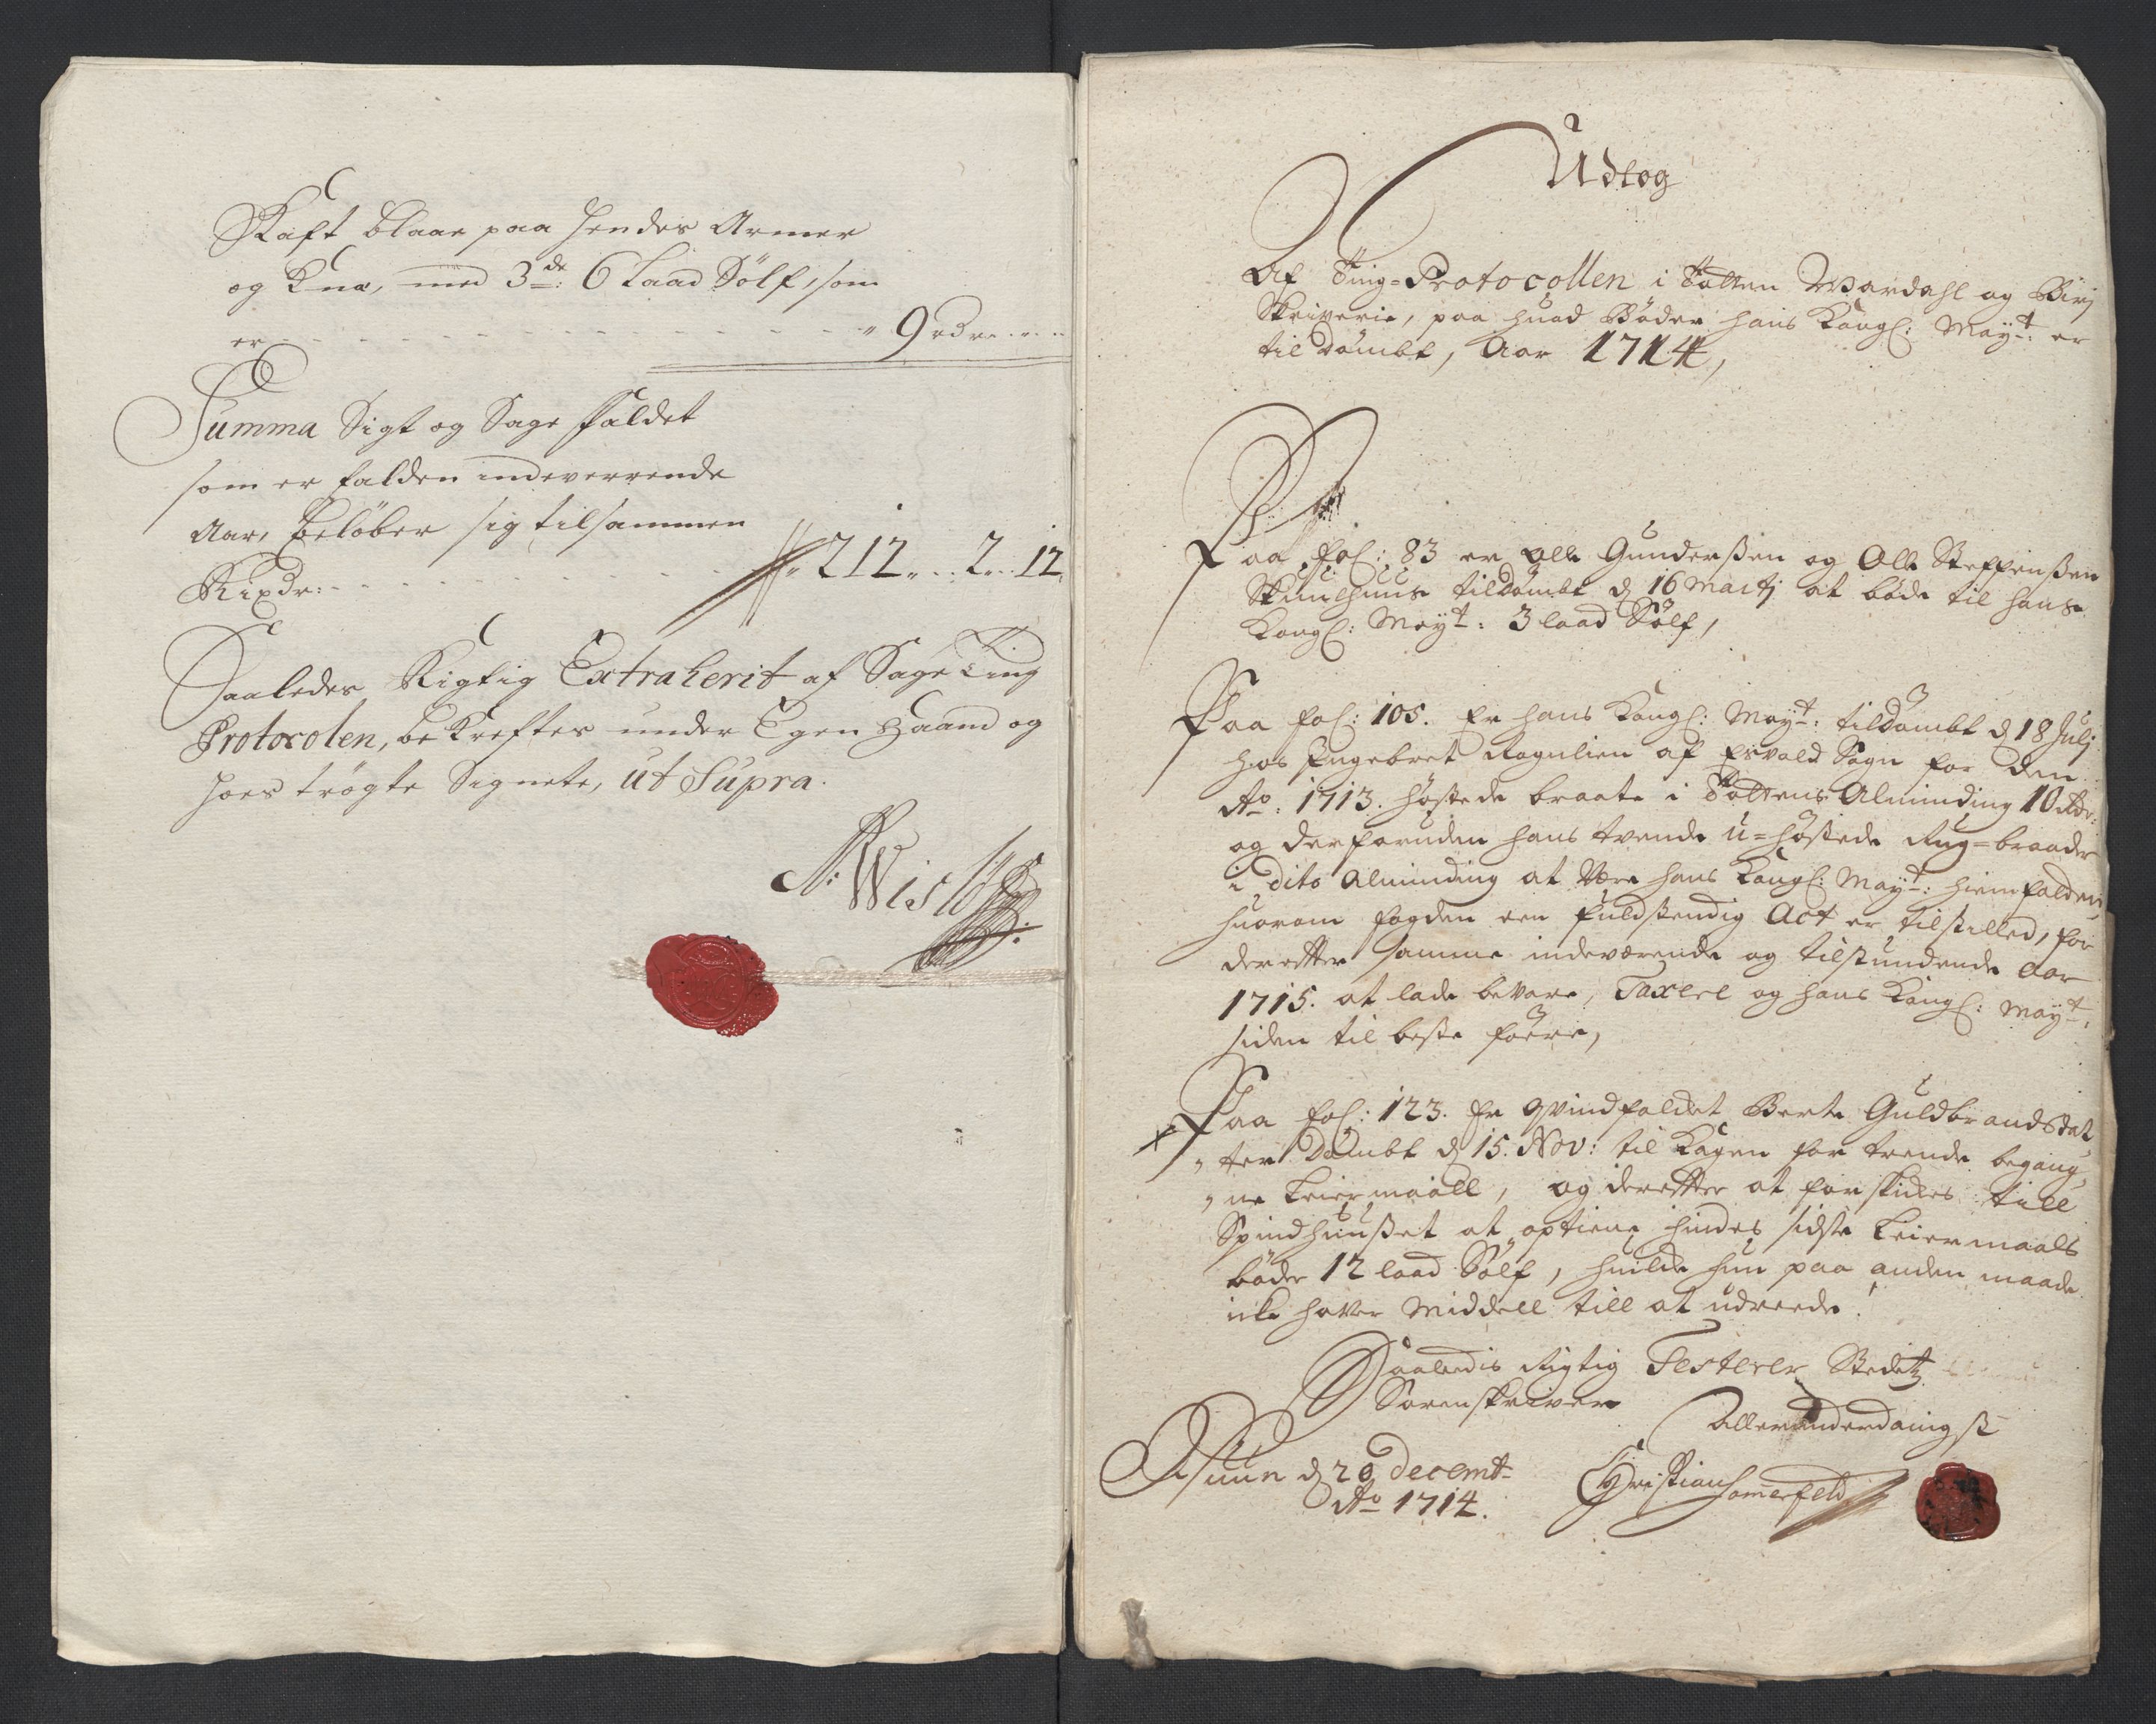 Skaft blaae paa hendes Armer
og Knæ, med 3de: 6 Laad Sölf, som
er - - - - - - - - - - - 9 rdr
Summa Sigt og Sage faldet
som er falden indeverrende
Aar, belöber sig tilsammen
Rixdr: - - - - - - - - 212 .. 2 .. 12
Saaledes Rigtig Extraherit af Sage Ting
Protocolen, bekreftes under Egen Haand og
hoes trögte Signete, ut Supra.
Udtog
Af Ting-Protocollen i Totten Wardahl og Birj
Skriverie, paa huad Böder hans Kongl: Mayt: er
til dömbt, Aar 1714,
Paa fol: 83 er Olle Gunderßen og Olle Steffenßen
Skuulhuus tildömbt d 16 Martj at böde til hans
Kongl: Mayt: 3 laad Sölf,
Paa fol: 105. Er hans Kongl: Mayt: tildömbt d 18 Julj
hos Engebret Rognlien af Eswold Sogn for den
Ao: 1713. höstede braate i Tottens Alminding 10 Rdr:
og derforuden hans tvende u-höstede Rug-braader
i dito Alminding at Være hans Kongl: Mayt: hiemfalden,
huorom fogden een fuldstendig Act er tilstilled, for
derefter samme indeværende og tilstundende Aar
1715. at lade bevare, Taxere og hans Kongl: Mayt,
siden til beste föere,
Paa fol: 123. Er Qvindfolcket Berte Guldbrandsdat,
ter Dömbt d 15. Nov: til Kagen for trende begang,
ne Leiermaall, og derefter at forskickes till
Spindhuußet at optiene hindes sidste Leiermaals
böder 12 laad Sölf, huilcke hun paa anden maade
icke haver Middell till at udreede!
Saaledis Rigtig Testerer Stedetz
Sorenskriver
Allerunderdanigst
d 20 Decembt
Ao 1714.
Christian Somerfeld